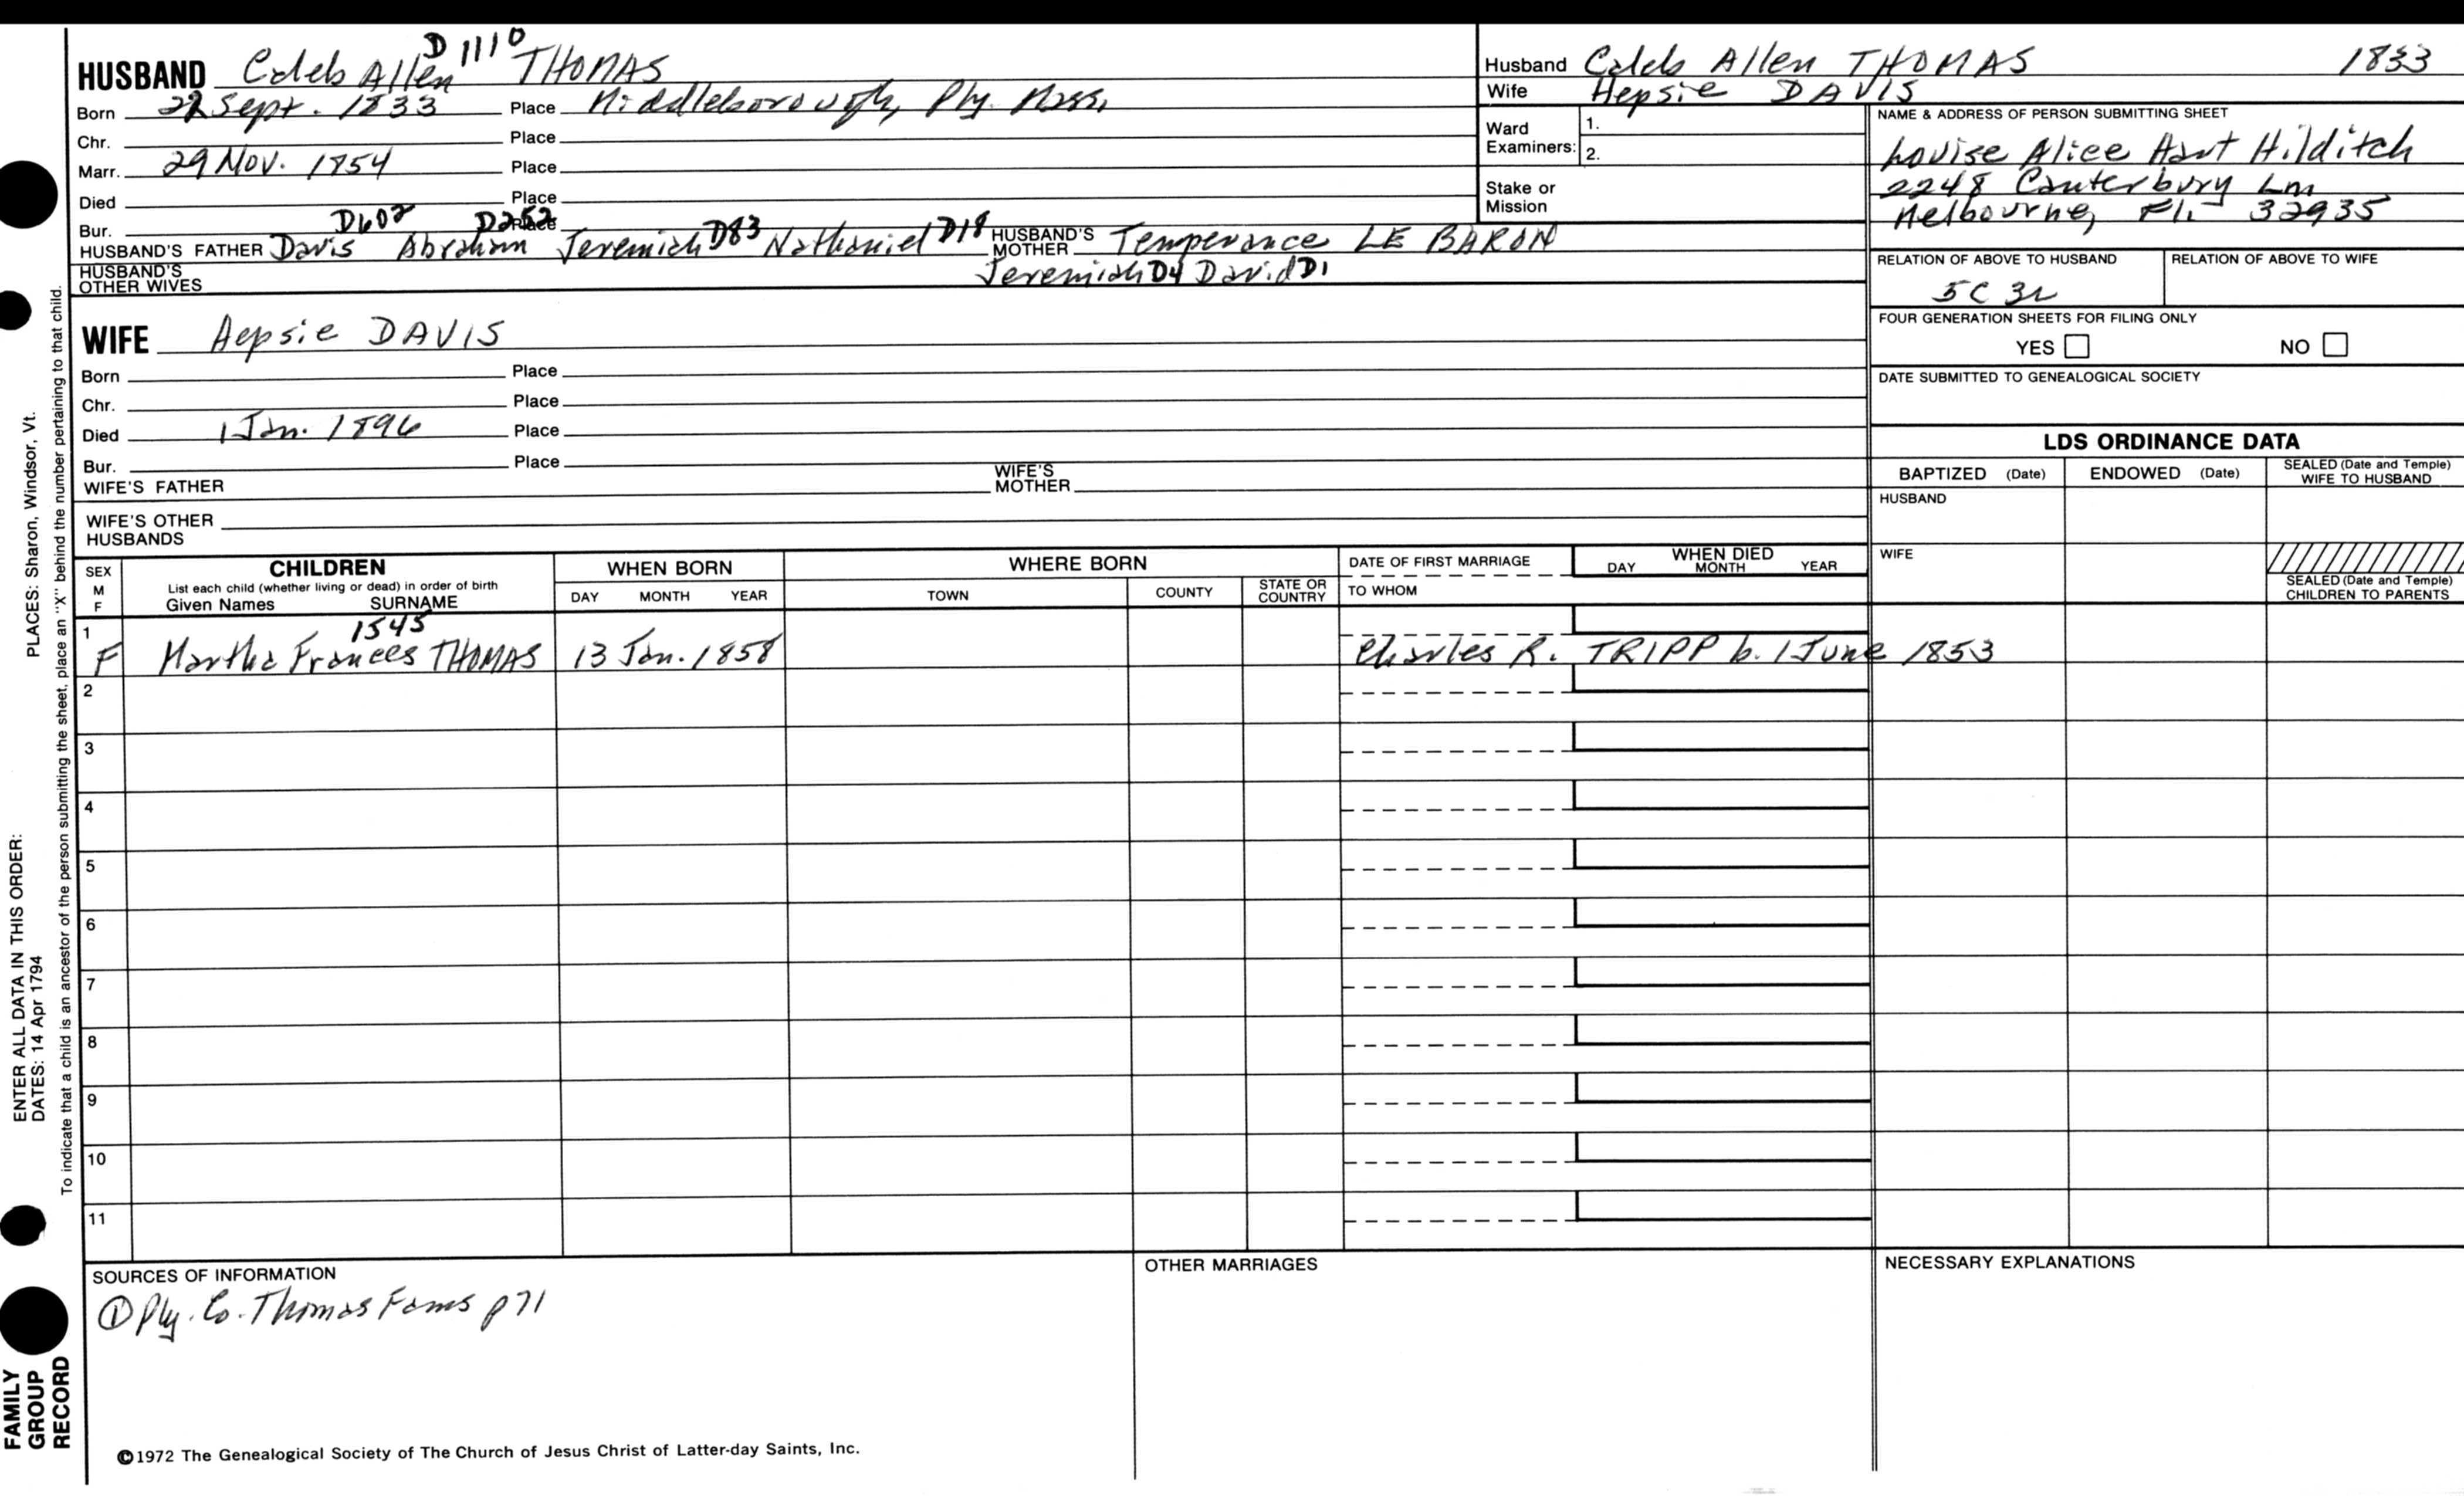 D 1110
HUSBAND Caleb Allen THOMAS
Born Sept. 1833 Place Middleborough, Ply. Mass.
Chr. Place
Marr. 29 Nov. 1854 Place
Died Place
Bur. Place
D602 D252
HUSBAND'S FATHER Davis Abraham Jeremiah D83 Nathaniel D18 HUSBAND'S MOTHER Temperance LE BARON
HUSBAND'S OTHER WIVES Jeremiah D4 David D1
WIFE Hepsie DAVIS
Born Place
Chr. Place
Died 1 Jan. 1896 Place
Bur. Place
WIFE'S FATHER WIFE'S MOTHER
WIFE'S OTHER HUSBANDS
Husband Caleb Allen THOMAS 1833
Wife Hepsie DAVIS
Ward Examiners: 1.
2.
Stake or Mission
NAME & ADDRESS OF PERSON SUBMITTING SHEET
Louise Alice Hilditch
2248 Canterbury Ln
Melbourne, Fl. 32935
RELATION OF ABOVE TO HUSBAND RELATION OF ABOVE TO WIFE
5C 3r
FOUR GENERATION SHEETS FOR FILING ONLY
YES NO
DATE SUBMITTED TO GENEALOGICAL SOCIETY
LDS ORDINANCE DATA
BAPTIZED (Date) ENDOWED (Date) SEALED (Date and Temple) WIFE TO HUSBAND
HUSBAND
WIFE
SEALED (Date and Temple) CHILDREN TO PARENTS
SEX M F
CHILDREN
List each child (whether living or dead) in order of birth
Given Names SURNAME
WHEN BORN
DAY MONTH YEAR
WHERE BORN
TOWN COUNTY STATE OR COUNTRY
DATE OF FIRST MARRIAGE
TO WHOM
WHEN DIED
DAY MONTH YEAR
1 1545
F Martha Frances THOMAS 13 Jan. 1858 Charles R. TRIPP b. 1 June 1853
2
3
4
5
6
7
8
9
10
11
SOURCES OF INFORMATION
① Ply. Co. Thomas Fams p71
OTHER MARRIAGES
NECESSARY EXPLANATIONS
©1972 The Genealogical Society of The Church of Jesus Christ of Latter-day Saints, Inc.
FAMILY GROUP RECORD
ENTER ALL DATA IN THIS ORDER:
DATES: 14 Apr 1794
PLACES: Sharon, Windsor, Vt.
To indicate that a child is an ancestor of the person submitting the sheet, place an "X" behind the number pertaining to that child.